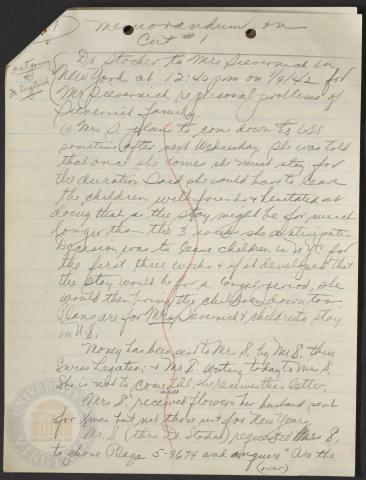 1
Memorandum on
Cut #1
outgoing
&
in English
Dr. Stocker to Mrs Sievernich in
New York at 12:40 pm on 1/8/42 for
Mr Sievernich re personal problems of
Sievernich family
(1) Mrs S. plans to come down to WSS
sometime after next Wednesday. She was told
that once she comes she must stay for
the duration. Said she would have to leave
the children with friends & hesitated at
doing that as the stay might be for much
longer than the 3 weeks she anticipated
Decision was to leave children in NYC for
the first three weeks & if it developed that
the stay would be for a longer period, she
would then bring the children down too.
Plans are for Mrs Sievernich & children to stay
in U.S.
Money has been sent to Mrs S. by Mr S. thru
Swiss Legation & Mr S. writing today to Mrs S.
She is not to come till she receives this letter.
Mrs S. received flowers her husband sent
for Xmas but not those sent for New Years.
Mr. S (thru Dr. Stocker) requested Mrs S.
to phone Plaza 5-9674 and inquire "Are the
(over)
UNIVERSITY
VIRGINIA